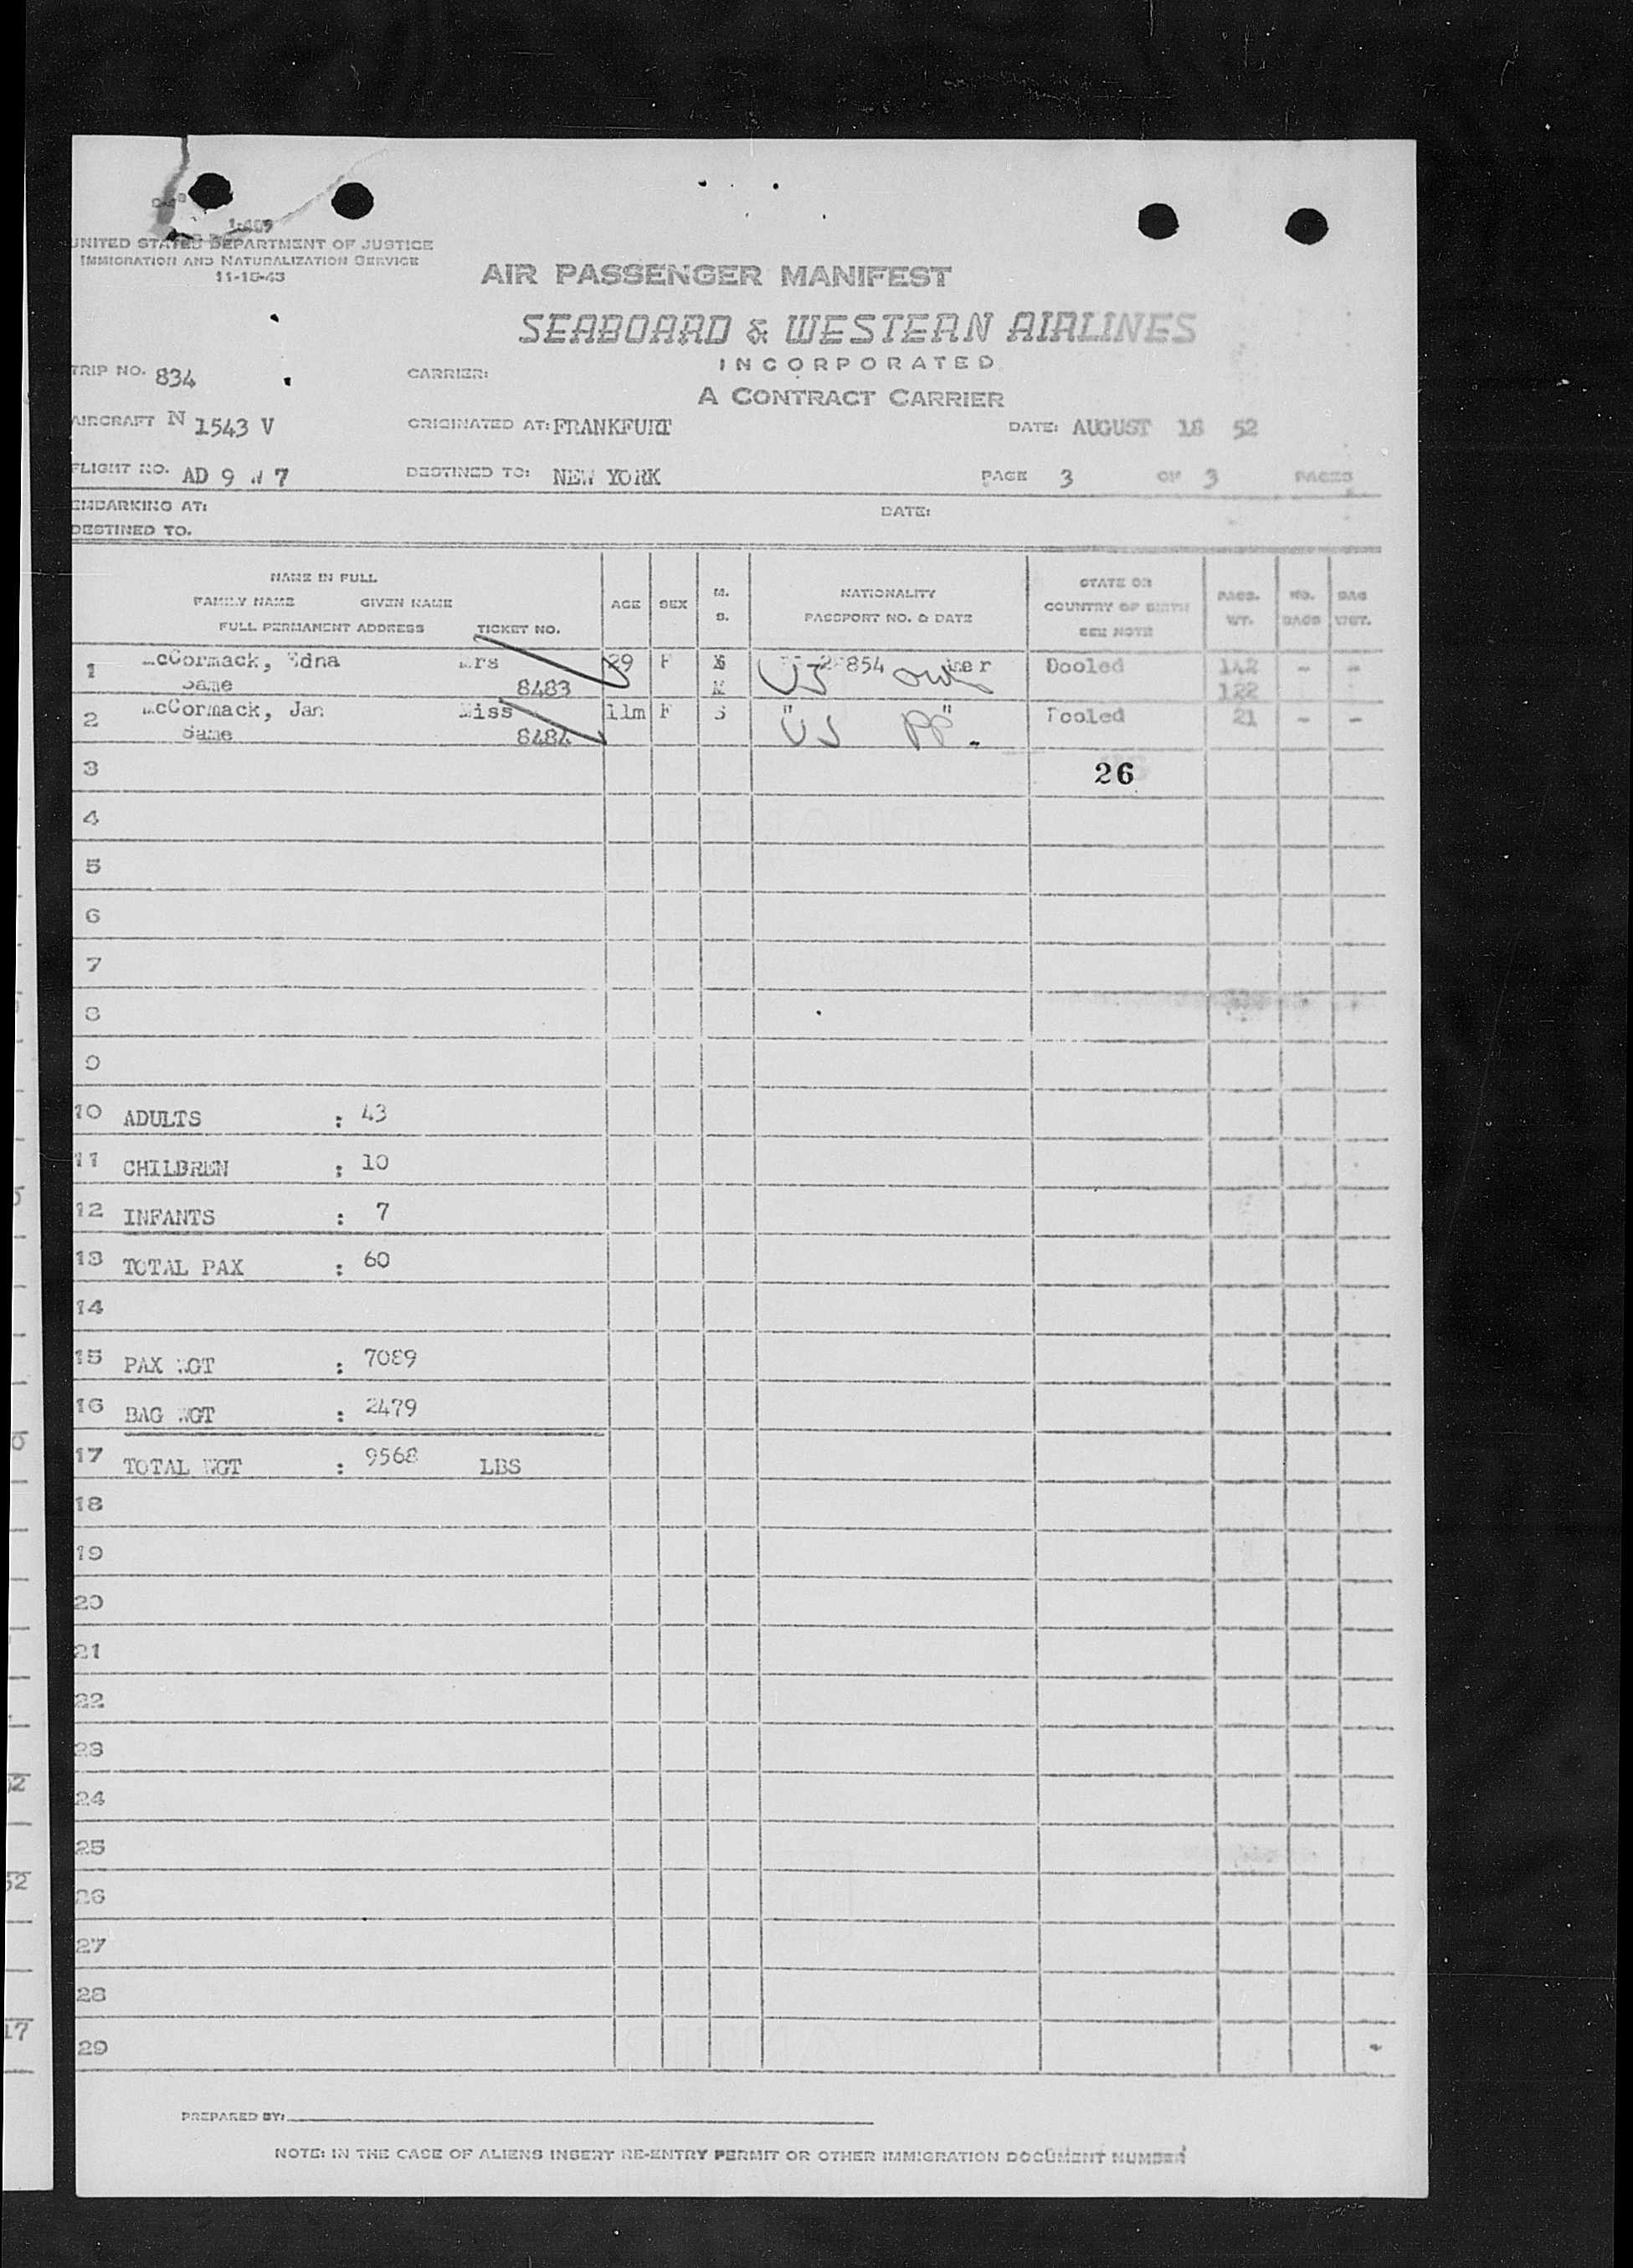 UNITED STATES DEPARTMENT OF JUSTICE
IMMIGRATION AND NATURALIZATION SERVICE
11-15-43
AIR PASSENGER MANIFEST
SEABOARD & WESTERN AIRLINES
INCORPORATED
A CONTRACT CARRIER
TRIP NO. 834 CARRIER:
AIRCRAFT N 1543 V ORIGINATED AT: FRANKFURT DATE: AUGUST 18 52
FLIGHT NO. AD 9 W 7 DESTINED TO: NEW YORK PAGE 3 OF 3 PAGES
EMBARKING AT: DATE:
DESTINED TO.
NAME IN FULL
FAMILY NAME GIVEN NAME
FULL PERMANENT ADDRESS TICKET NO.
AGE SEX M. S.
NATIONALITY
PASSPORT NO. & DATE
STATE OR
COUNTRY OF BIRTH
SEE NOTE
PASS. WT. NO. BAGS BAG WGT.
1 McCormack, Edna Mrs 29 F 854 Pooled 142 - -
Same 8483 M US 122
2 McCormack, Jan Miss 11m F S " " Pooled 21 - -
Same 8484 US PP.
3 26
4
5
6
7
8
9
10 ADULTS : 43
11 CHILDREN : 10
12 INFANTS : 7
13 TOTAL PAX : 60
14
15 PAX WGT : 7089
16 BAG WGT : 2479
17 TOTAL WGT : 9568 LBS
18
19
20
21
22
23
24
25
26
27
28
29
PREPARED BY:
NOTE: IN THE CASE OF ALIENS INSERT RE-ENTRY PERMIT OR OTHER IMMIGRATION DOCUMENT NUMBER